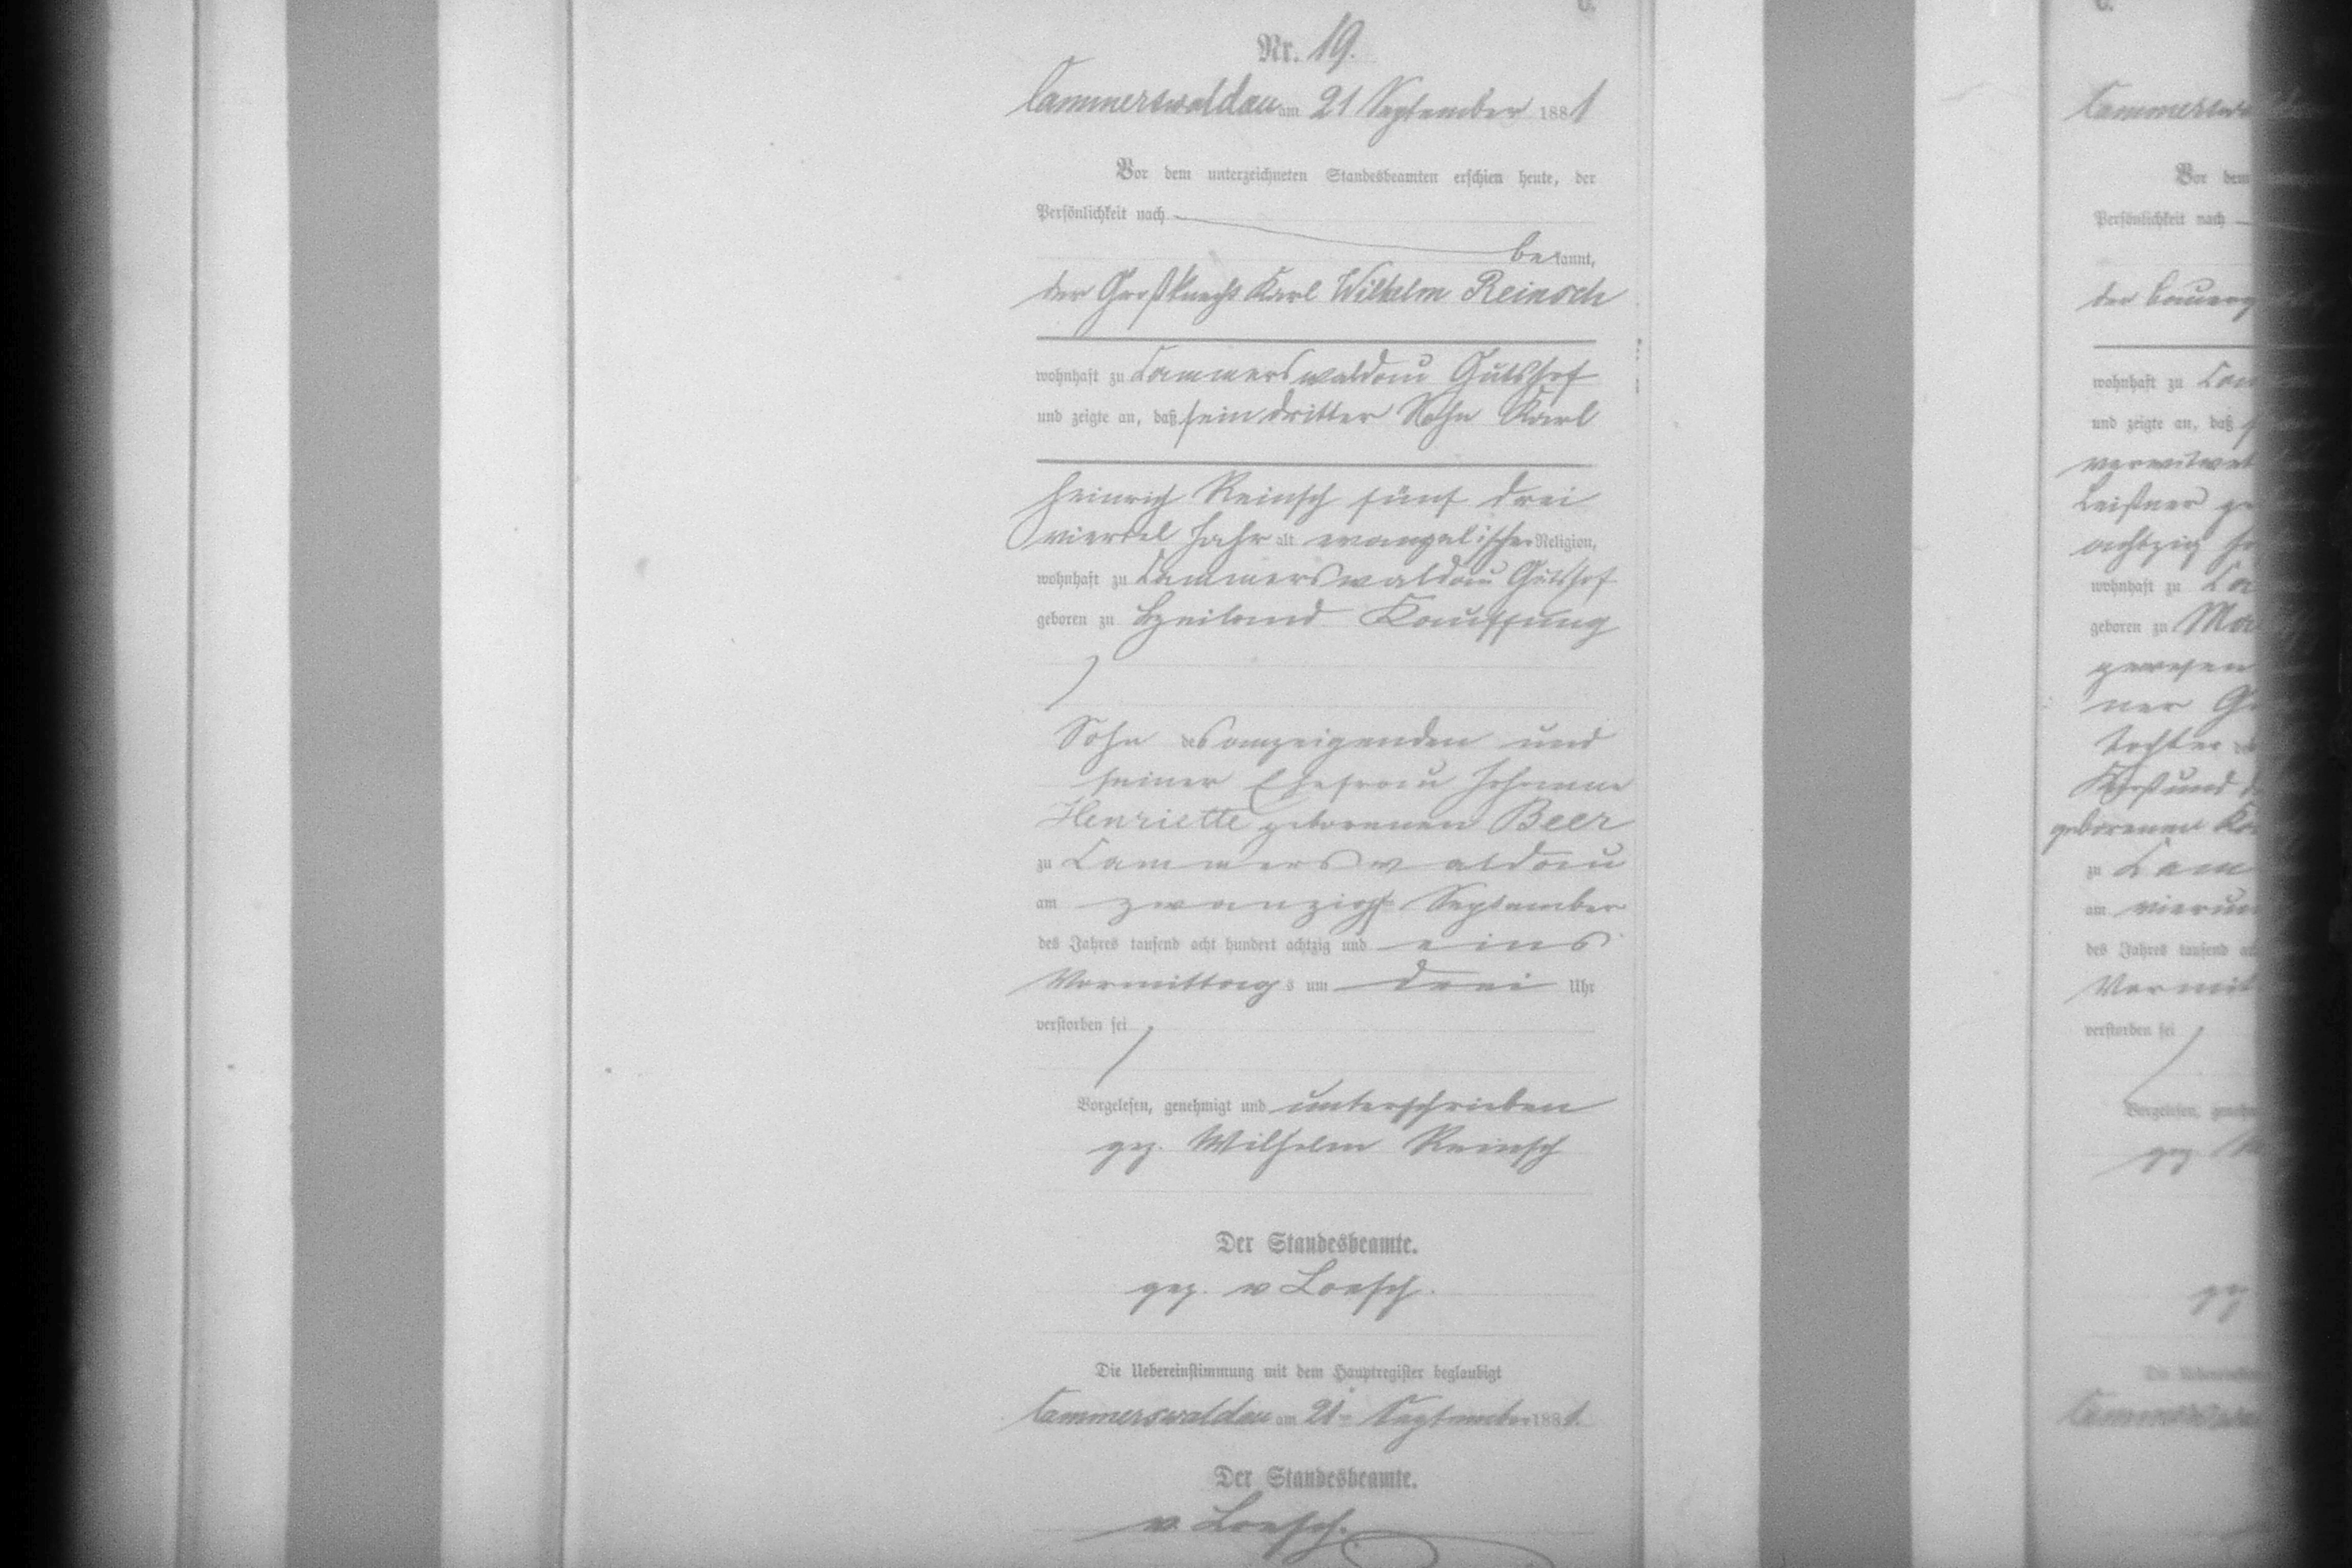 C.
Nr. 19.
Cammerswaldau am 21 September 1881
Vor dem unterzeichneten Standesbeamten erschien heute, der
Persönlichkeit nach
bekannt,
der Großknecht Karl Wilhelm Reinsch
wohnhaft zu Cammerswaldau Gutshof
und zeigte an, daß sein dritter Sohn Karl
Heinrich Reinsch fünf drei
viertel Jahr alt evangelischer Religion,
wohnhaft zu Cammerswaldau Gutshof
geboren zu Kauffung
Sohn des anzeigenden und
seiner Ehefrau Johanne
Henriette geborenen Beer
zu Cammerswaldau
am zwanzigst September
des Jahres tausend acht hundert achtzig und eins
Vormittags um drei Uhr
verstorben sei
Vorgelesen, genehmigt und unterschrieben
gez. Wilhelm Reinsch
Der Standesbeamte.
gez. v Loesch.
Die Uebereinstimmung mit dem Hauptregister beglaubigt
Cammerswaldau am 21 September 1881.
Der Standesbeamte.
v. Loesch.
C.
Cammersw
Vor dem
Persönlichkeit nach
der Bauerg
wohnhaft zu Cam
und zeigte an, daß
verwitwet
Leißner ge
achtzig
wohnhaft zu Ca
geboren zu Ma
gewesen
ner
Tochter
und
geborenen
zu Cam
am vierun
des Jahres tausend
Vormit
verstorben sei
Vorgelesen,
gez